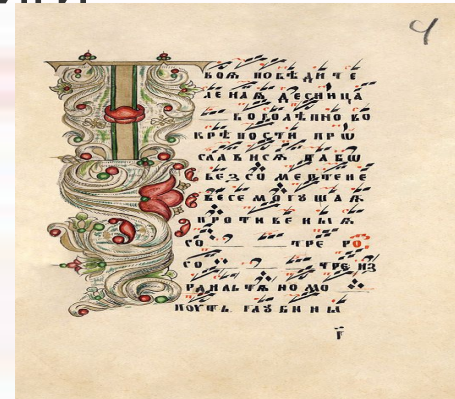 4
ТВОѦ ПОБѢДИТЕ
ЛЕНАѦ ДЕСНИЦА
БОГОЛѢПНО ВО
КРѢПОСТИ ПРѠ
СЛАВИСѦ
ВЕСЕМОГУЩАѦ
ПРОТИВЕНЫѦ
СО ТРЕ РО
СО ТРЕ ИЗ
РАИЛЬТѦНОМО
ПОУТЬ ГЛУБИНЫ